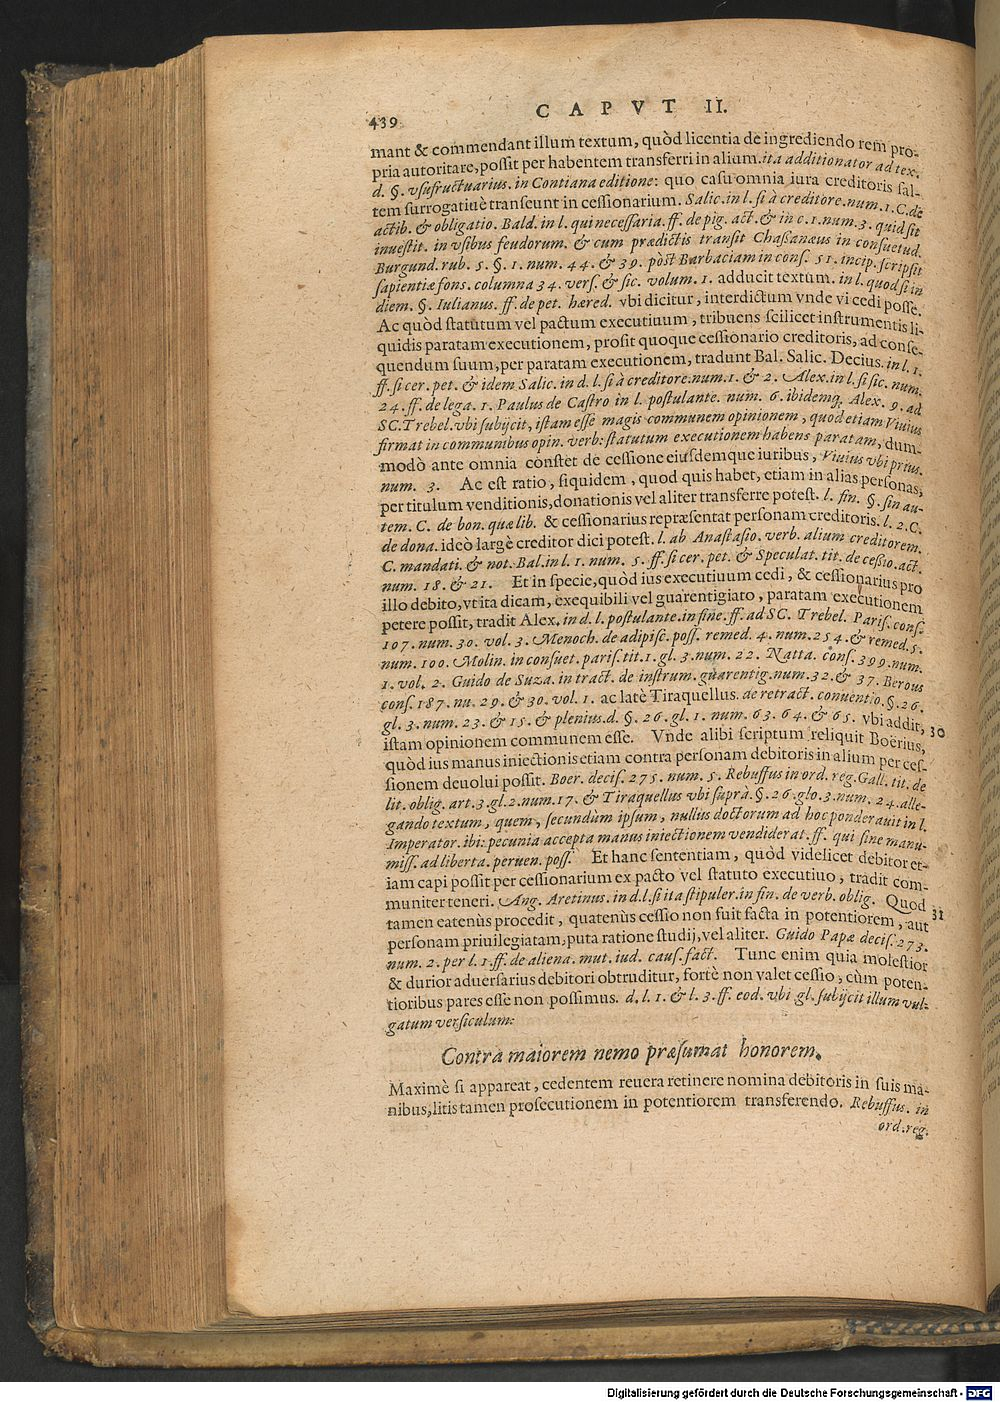 439 CAPVT II.
mant & commendant illum textum, quòd licentia de ingrediendo rem pro-
pria autoritate, possit per habentem transferri in alium. ita additionator ad tex.
d. §. vsufructuarius. in Contiana editione: quo casu omnia iura creditoris sal-
tem surrogatiuè transeunt in cessionarium. Salic. in l. si à creditore. num. 1. C. de
actib. & obligatio. Bald. in l. qui necessaria. ff. de pig. act. & in c. 1. num. 3. quid sit
inuestit. in vsibus feudorum. & cum prædictis transit Chassanæus in consuetud.
Burgund. rub. 5. §. 1. num. 44. & 39. pòst Barbaciam in cons. 51. incip. scripsit
sapientiæ fons. columna 34. vers. & sic. volum. 1. adducit textum. in l. quod si in
diem. §. Iulianus. ff. de pet. hæred. vbi dicitur, interdictum vnde vi cedi posse.
Ac quòd statutum vel pactum executiuum, tribuens scilicet instrumentis li-
quidis paratam executionem, prosit quoque cessionario creditoris, ad conse-
quendum suum, per paratam executionem, tradunt Bal. Salic. Decius. in l. 1.
ff. si cer. pet. & idem Salic. in d. l. si à creditore. num. 1. & 2. Alex. in l. si sic. num.
24. ff. de lega. 1. Paulus de Castro in l. postulante. num. 6. ibidemq́. Alex. 9. ad
SC. Trebel. vbi subijcit, istam esse magis communem opinionem, quod etiam Viuius
firmat in communibus opin. verb: statutum executionem habens paratam, dum-
modò ante omnia constet de cessione eiusdemque iuribus, Viuius vbi prius.
num. 3. Ac est ratio, siquidem, quod quis habet, etiam in alias personas,
per titulum venditionis, donationis vel aliter transferre potest. l. fin. §. sin au-
tem. C. de bon. quæ lib. & cessionarius repræsentat personam creditoris. l. 2. C.
de dona. ideò largè creditor dici potest. l. ab Anastasio. verb. alium creditorem.
C. mandati. & not. Bal. in l. 1. num. 5. ff. si cer. pet. & Speculat. tit. de cessio. act.
num. 18. & 21. Et in specie, quòd ius executiuum cedi, & cessionarius pro
illo debito, vt ita dicam, exequibili vel guarentigiato, paratam executionem
petere possit, tradit Alex. in d. l. postulante. in fine. ff. ad SC. Trebel. Paris. cons.
107. num. 30. vol. 3. Menoch. de adipisc. poss. remed. 4. num. 254. & remed. 5.
num. 100. Molin. in consuet. paris. tit. 1. gl. 3. num. 22. Natta. cons. 399. num.
1. vol. 2. Guido de Suza. in tract. de instrum. guarentig. num. 32. & 37. Berous
cons. 187. nu. 29. & 30. vol. 1. ac latè Tiraquellus. de retract. conuentio. §. 26.
gl. 3. num. 23. & 15. & plenius. d. §. 26. gl. 1. num. 63. 64. & 65. vbi addit, 30
istam opinionem communem esse. Vnde alibi scriptum reliquit Boërius,
quòd ius manus iniectionis etiam contra personam debitoris in alium per ces-
sionem deuolui possit. Boer. decis. 275. num. 5. Rebuffus in ord. reg. Gall. tit. de
lit. oblig. art. 3. gl. 2. num. 17. & Tiraquellus vbi suprà. §. 26 glo. 3. num. 24. alle-
gando textum, quem, secundùm ipsum, nullus doctorum ad hoc ponderauit in l.
Imperator. ibi: pecunia accepta manus iniectionem vendiderat. ff. qui sine manu-
miss. ad liberta. peruen. poss. Et hanc sententiam, quòd videlicet debitor et-
iam capi possit per cessionarium ex pacto vel statuto executiuo, tradit com-
muniter teneri. Ang. Aretinus. in d. l. si ita stipuler. in fin. de verb. oblig. Quod
tamen eatenùs procedit, quatenùs cessio non fuit facta in potentiorem, aut 31
personam priuilegiatam, puta ratione studij, vel aliter. Guido Papæ decis. 273.
num. 2. per l. 1. ff. de aliena. mut. iud. caus. fact. Tunc enim quia molestior
& durior aduersarius debitori obtruditur, fortè non valet cessio, cùm poten-
tioribus pares esse non possimus. d. l. 1. & l. 3. ff. eod. vbi gl. subijcit illum vul-
gatum versiculum:
Contra maiorem nemo præsumat honorem.
Maximè si appareat, cedentem reuera retinere nomina debitoris in suis ma-
nibus, litis tamen prosecutionem in potentiorem transferendo. Rebuffus. in
ord. reg.
Digitalisierung gefördert durch die Deutsche Forschungsgemeinschaft - DFG